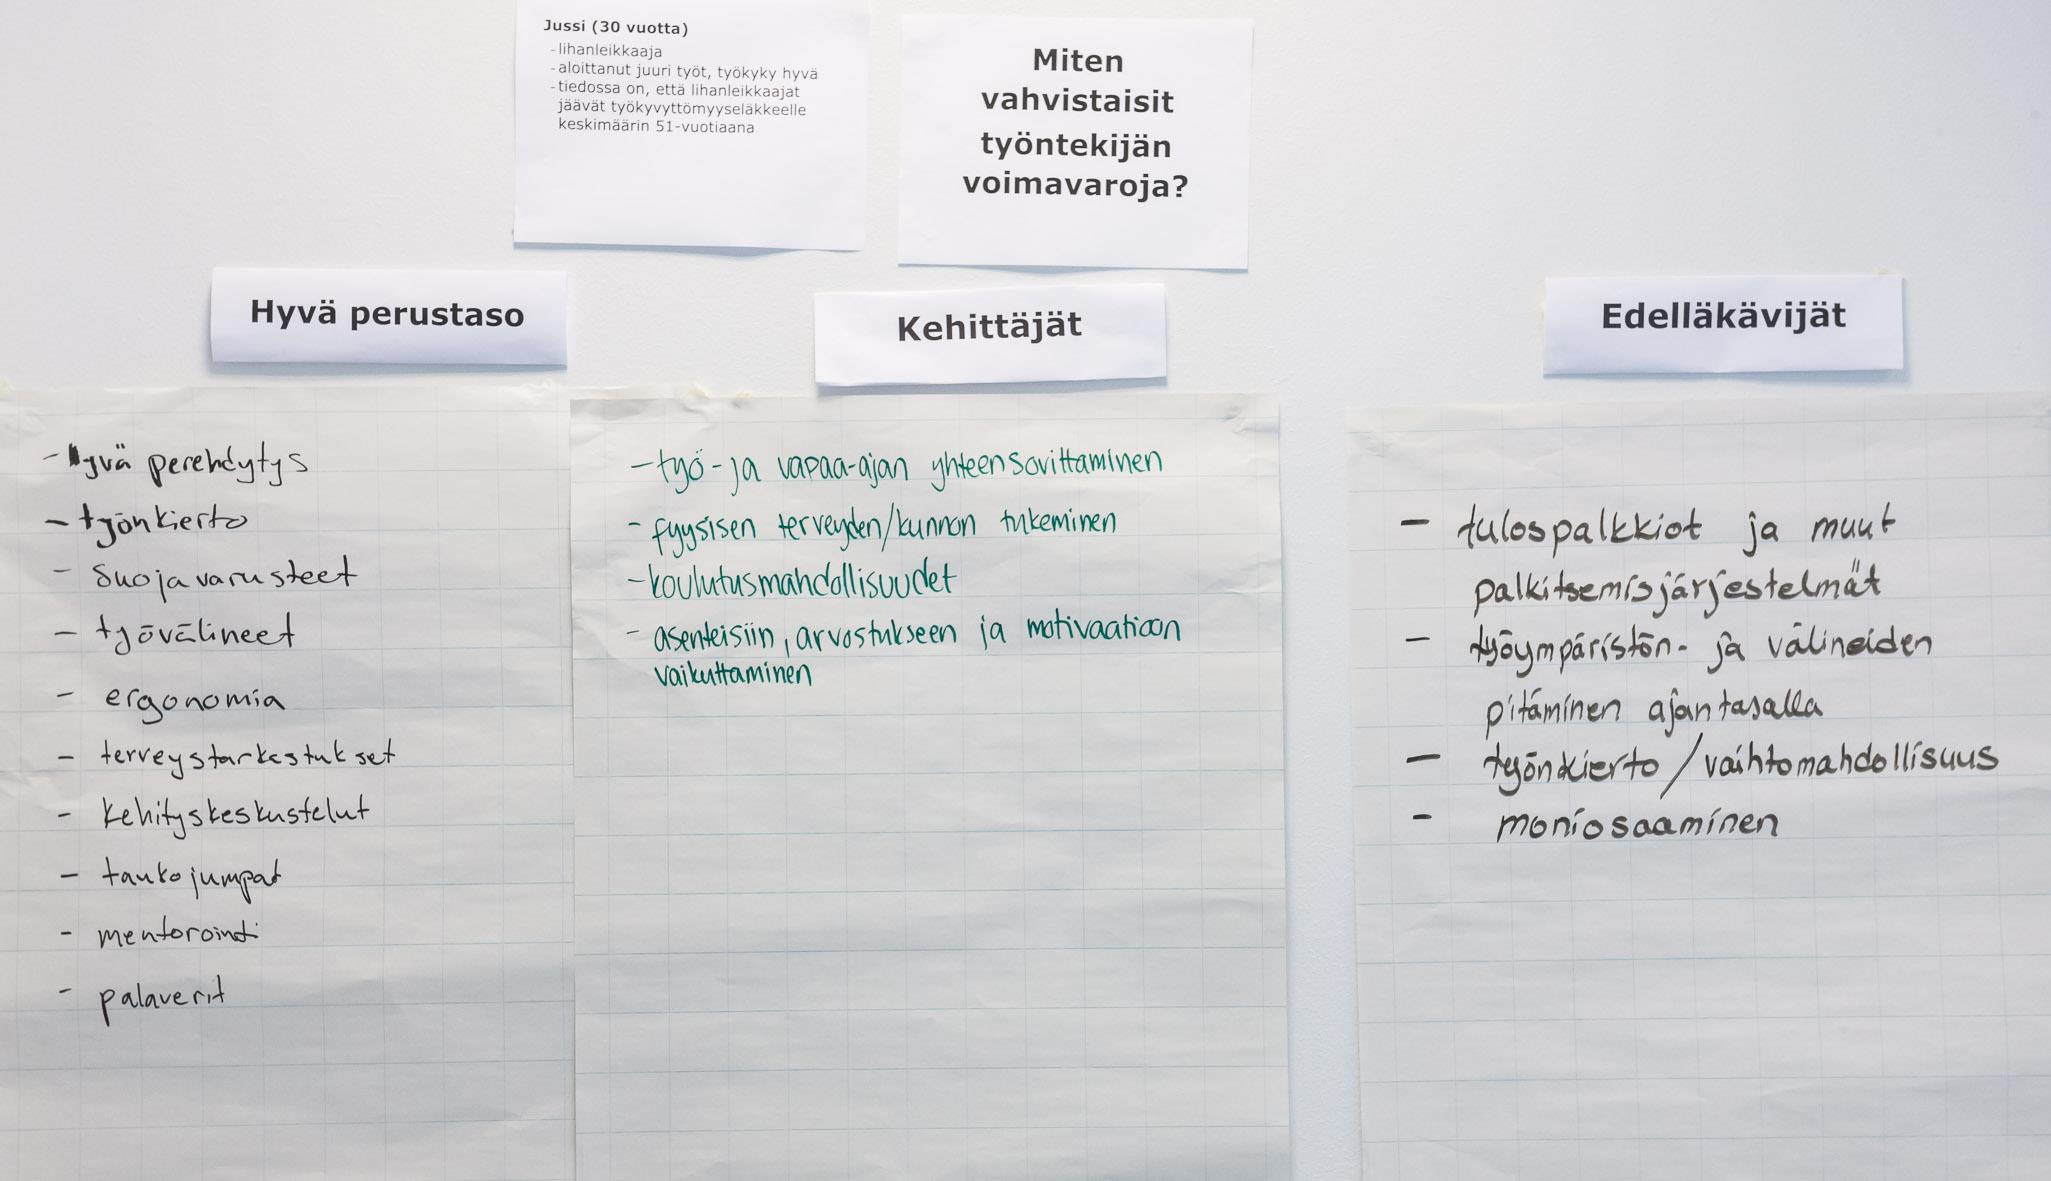 Jussi (30 vuotta)
-lihanleikkaaja
-aloittanut juuri työt, työkyky hyvä
-tiedossa on, että lihanleikkaajat
jäävät työkyvyttömyyseläkkeelle
keskimäärin 51-vuotiaana
Miten
vahvistaisit
työntekijän
voimavaroja?
Hyvä perustaso
- hyvä perehdytys
- työnkierto
- suojavarusteet
- työvälineet
- ergonomia
- terveystarkastukset
- kehityskeskustelut
- taukojumpat
- mentorointi
- palaverit
Kehittäjät
- työ- ja vapaa-ajan yhteensovittaminen
- fyysisen terveyden/kunnon tukeminen
- koulutusmahdollisuudet
- asenteisiin, arvostukseen ja motivaatioon
vaikuttaminen
Edelläkävijät
- tulospalkkiot ja muut
palkitsemisjärjestelmät
- työympäristön- ja välineiden
pitäminen ajantasalla
- työnkierto / vaihtomahdollisuus
- moniosaaminen